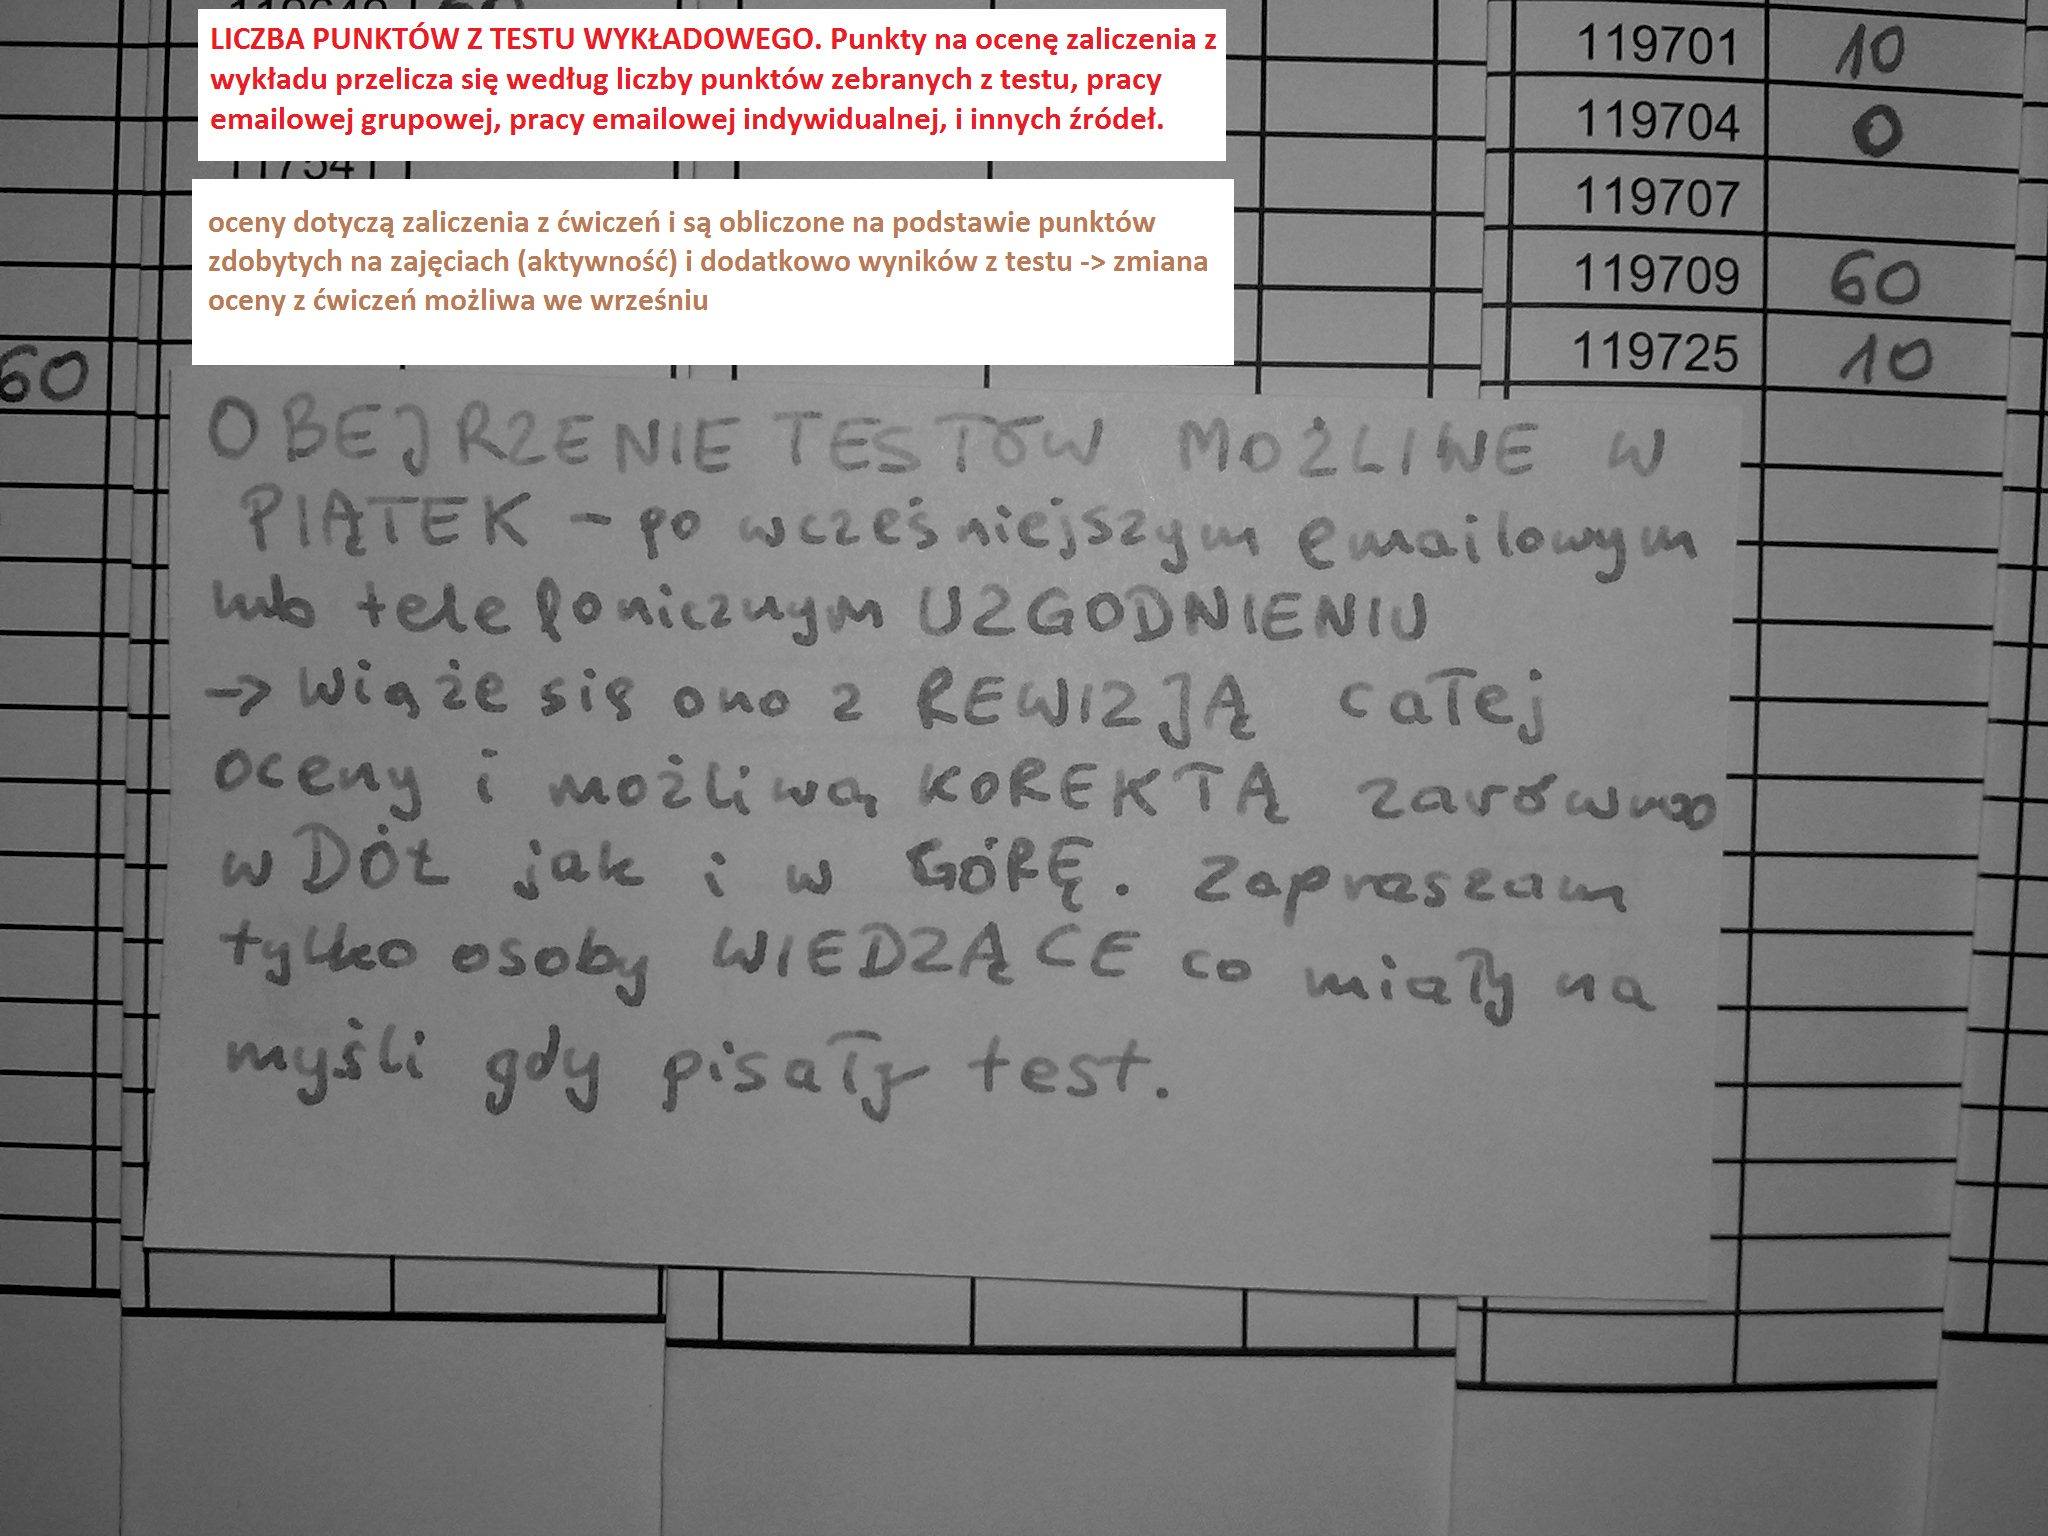 LICZBA PUNKTÓW Z TESTU WYKŁADOWEGO. Punkty na ocenę zaliczenia z
wykładu przelicza się według liczby punktów zebranych z testu, pracy
emailowej grupowej, pracy emailowej indywidualnej, i innych źródeł.
oceny dotyczą zaliczenia z ćwiczeń i są obliczone na podstawie punktów
zdobytych na zajęciach (aktywność) i dodatkowo wyników z testu -> zmiana
oceny z ćwiczeń możliwa we wrześniu
119701 10
119704 0
119707
119709 60
119725 10
60
OBEJRZENIE TESTÓW MOŻLIWE W
PIĄTEK - po wcześniejszym emailowym
lub telefonicznym UZGODNIENIU
-> Wiąże się ono z REWIZJĄ całej
oceny i możliwą KOREKTĄ zarówno
w DÓŁ jak i w GÓRĘ. Zapraszam
tylko osoby WIEDZĄCE co miały na
myśli gdy pisały test.